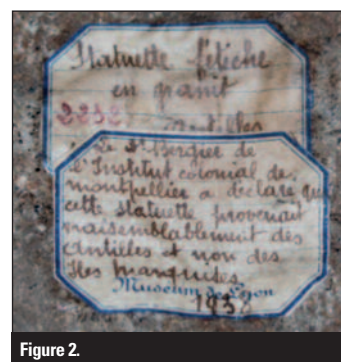 Statuette fétiche
en granit
2232 Antilles
Le Dr Bergier de
l'Institut colonial de
montpellier a déclaré que
cette statuette provenait
vraisemblablement des
Antilles et non des
Iles marquises
Museum de Lyon
1938
Figure 2.